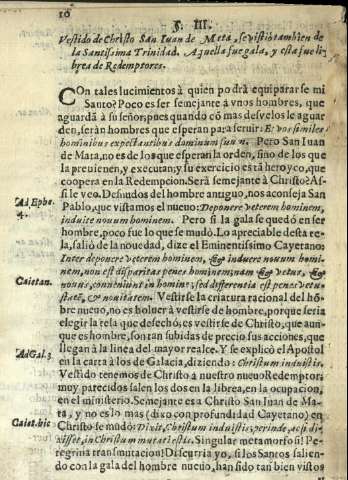 10
§. III.
Vestido de Christo San Iuan de Mata, se vistiò tambien de
la Santissima Trinidad. Aquella fue gala, y esta fue li-
brea de Redemptores.
COn tales lucimientos à quien podrà equiparar se mi
Santo? Poco es ser semejante à vnos hombres, que
aguardã a su señor; pues quando cõ mas desvelos le aguar
den, seràn hombres que esperan para seruir: Et vos similes
hominibus expectantibus dominum suum. Pero San Iuan
de Mata, no es de los que esperan la orden, sino de los que
la preuienen, y executan; y su exercicio es tã heroyco, que
coopera en la Redempcion. Serà semejante à Christo? As-
si le veo. Desnudos del hombre antiguo, nos aconseja San
Ad Ephe.
4.
Pablo, que vistamos el nueuo: Deponere veterem hominem,
induite nouum hominem. Pero si la gala se quedò en ser
hombre, poco fue lo que se mudò. Lo apreciable desta te-
la, saliò de la nouedad, dize el Eminentissimo Cayetano:
Inter deponere veterem hominem, & induere nouum homi-
Caietan.
nem, non est disparitas penes hominem; nam & vetus, &
nouus, conueniunt in homine; sed differentia est penes vetu-
statẽ, & nouitatem. Vestirse la criatura racional del hõ-
bre nueuo, no es boluer à vestirse de hombre, porque seria
elegir la tela que desechò; es vestirse de Christo, que aun-
que es hombre, son tan subidas de precio sus acciones, que
Ad Gal. 3
llegan à la linea del mayor realce. Y se explicò el Apostol
en la carta à los de Galacia, diziendo: Christum induistis.
Vestido tenemos de Christo à nuestro nueuo Redemptor;
muy parecidos salen los dos en la librea, en la ocupacion,
en el ministerio. Semejante es à Christo San Iuan de Ma-
ta, y no es lo mas (dixo con profundidad Cayetano) en
Caiet. hic
Christo se mudò: Dixit, Christum induistis; perinde, ac si di-
xisset, in Christum mutati estis. Singular metamorfosi! Pe-
regrina transmutacion! Discurria yo, si los Santos salien-
do con la gala del hombre nueuo, han sido tan bien vistos